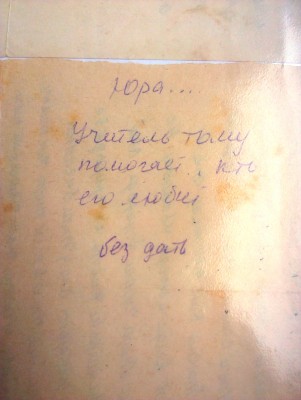 Юра....
Учитель тому
помогает, кто
его любит
без даты